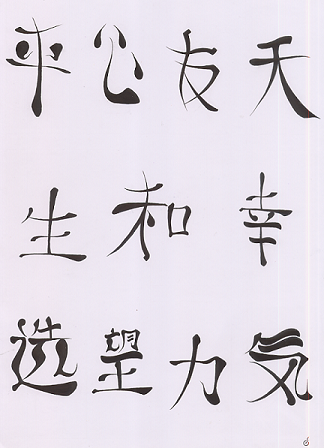 平公友天
生和幸
造望力気